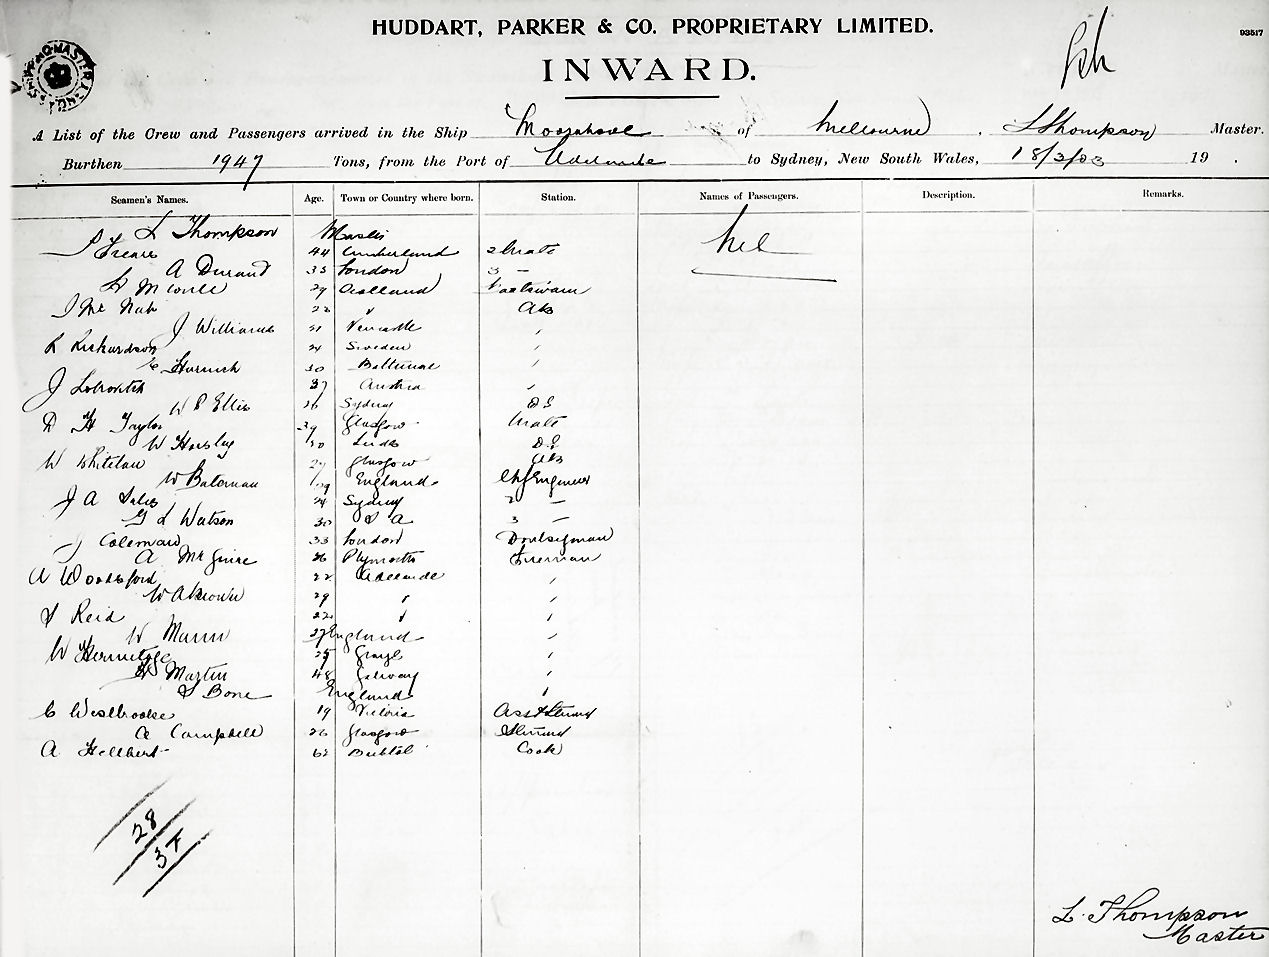 HUDDART, PARKER & CO. PROPRIETARY LIMITED.
93517
INWARD.
A List of the Crew and Passengers arrived in the Ship of Melbourne. L Thompson Master.
Burthen 1947 Tons, from the Port of Adelaide to Sydney, New South Wales, 18/3/03 19 .
Seamen's Names. Age. Town or Country where born. Station. Names of Passengers. Description. Remarks.
L Thompson Master
44 Cumberland 2 Mate
A Durand 33 London 3 —
29 Scotland Boatswain
J Mc Nab 22 " AB
J Williams 21 Newcastle "
R Richardson 24 Sweden "
30 "
J 37 Austria "
W P Ellis 26 Sydney
D H Taylor 39 Glasgow Mate
W Horsley 30 Leeds
W Whitelaw 27 Glasgow AB
W Bateman England Chf Engineer
J A 24 Sydney 2 —
G L Watson 30 S A 3 —
J Coleman 33 London
A McGuire 26 Plymouth Fireman
A Woodsford 22 Adelaide "
29 " "
J Reid 22 " "
W Mann 27 England "
W Hermitage 25 "
H Martin 48 Galway "
S Bone England "
C Westbrooke 19 Victoria Asst Steward
A Campbell 26 Glasgow Steward
A 62 Bristol Cook
Nil
28
37
L. Thompson
Master